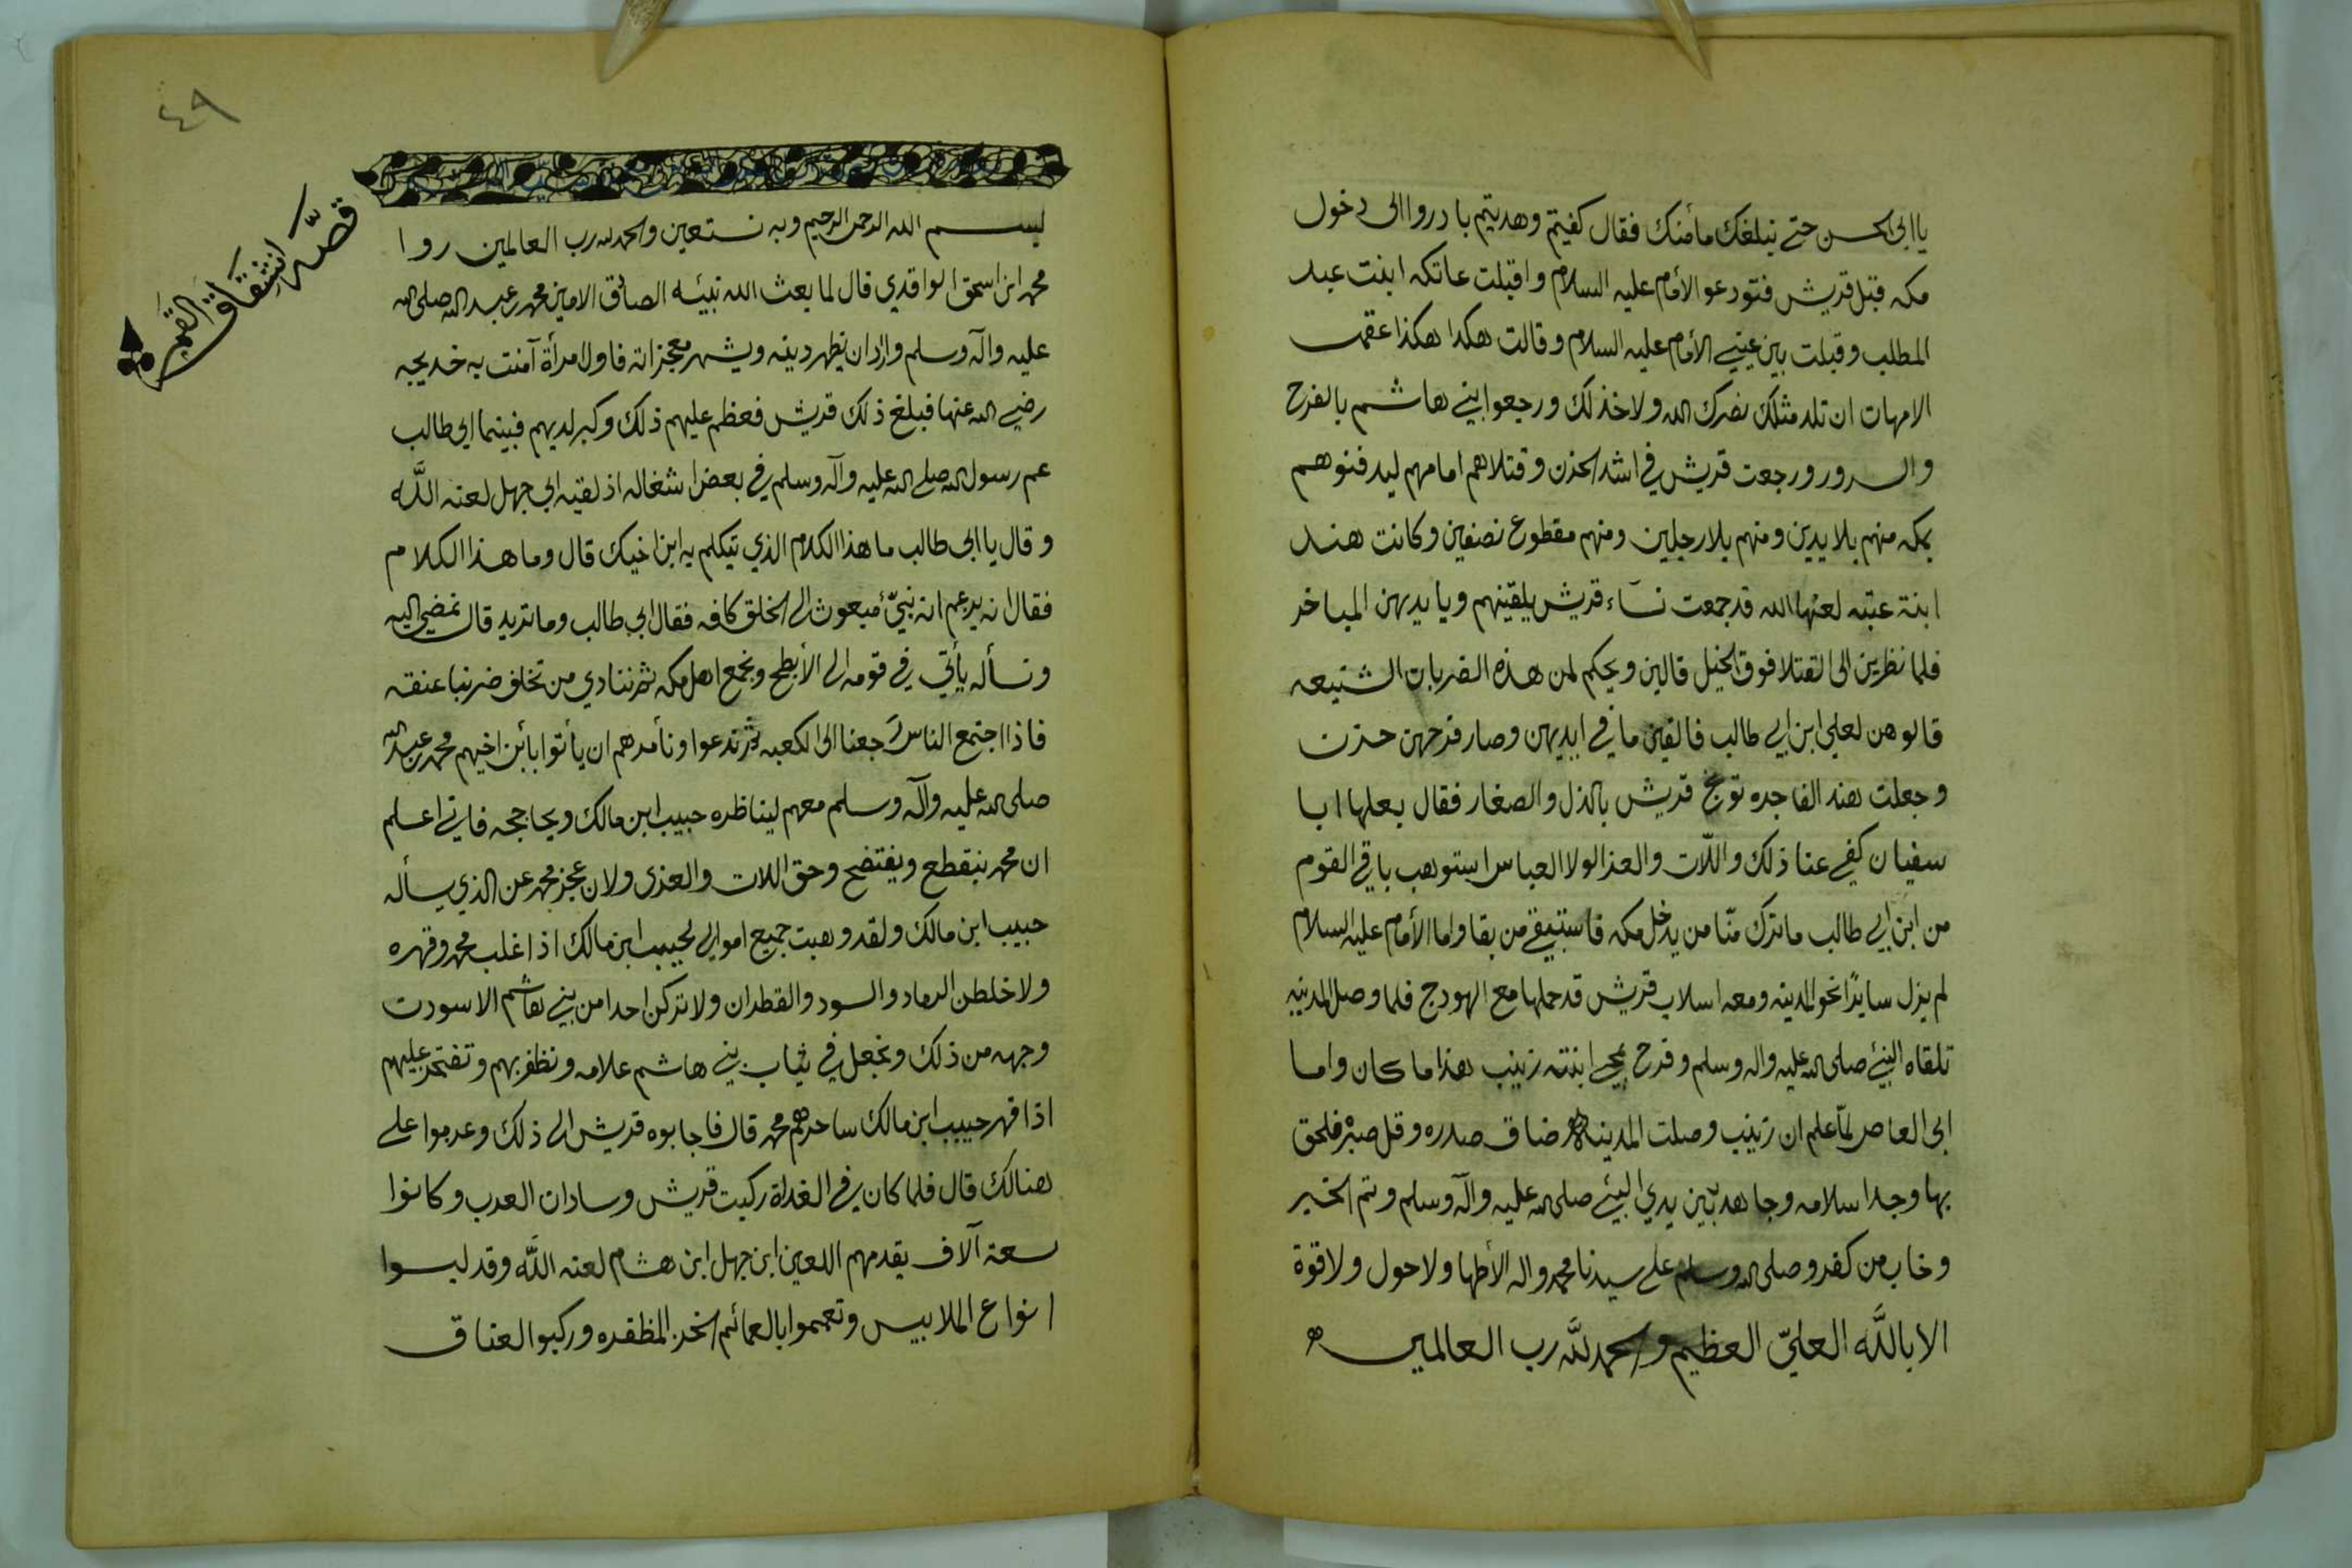 يا ابى الحسن حتے نبلغك مأمنك فقال كفيتم وهديتم بادروا الى دخول
مكه قبل قريش فتودعو الأمام عليه السلام واقبلت عاتكه ابنت عبد
المطلب وقبلت بين عينے الأمام عليه السلام وقالت هكذا هكذا عقمت
الامهات ان تلد مثلك نصرك الله ولا خذلك ورجعوا بنے هاشم بالفرح
والسرور ورجعت قريش في اشد الحزن وقتلاهم امامهم ليدفنوهم
بمكه منهم بلا يدين ومنهم بلا رجلين ومنهم مقطوع نصفين وكانت هند
ابنة عتبه لعنها الله قد جمعت نسآء قريش يلقينهم وبايديهن المباخر
فلما نظرين الى القتلا فوق الخيل قالين ويحكم لمن هذه الضربات الشنيعه
قالو هن لعلي ابن ابي طالب فالقين ما في ايديهن وصار فرحهن حزن
وجعلت هند الفاجره توبخ قريش بالذل والصغار فقال بعلها ابا
سفيان كفے عنا ذلك واللّات والعزا لولا العباس استوهب باقے القوم
من ابن ابي طالب ما ترك منّا من يدخل مكه فاستبقے من بقا واما الأمام عليه السلام
لم يزل سايرًا نحو المدينه ومعه اسلاب قريش قد حملها مع الهودج فلما وصل المدينه
تلقاه النبےُ صلى الله عليه واله وسلم وفرح بمجے ابنته زينب هذا ما كان واما
ابى العاص لمّا علم ان زينب وصلت المدينه ضاق صدره وقل صبره فلحق
بها وجدا سلامه وجاهد بين يدي النبےُ صلى الله عليه وآله وسلم وتم الخبر
وخاب من كفر وصلى الله وسلم على سيدنا محمد واله الأطها ولا حول ولا قوة
الا باللَّه العليّ العظيم والحمد للَّه رب العالمين
٤٩
قصّة انشقاق القمر
بسم الله الرحمن الرحيم وبه نستعين والحمد لله رب العالمين روا
محمد ابن اسحق الواقدي قال لما بعث الله نبيّه الصادق الامين محمد بن عبد الله صلى الله
عليه وآله وسلم واراد ان يظهر دينه ويشهر معجزاته فاول امرأة آمنت به خديجه
رضے الله عنها فبلغ ذلك قريش فعظم عليهم ذلك وكبر لديهم فبينما ابي طالب
عم رسول الله صلى الله عليه وآله وسلم في بعض اشغاله اذ لقيه ابي جهل لعنه اللَّه
وقال يا ابى طالب ما هذا الكلام الذي تيكلم به ابن اخيك قال وما هذا الكلام
فقال انه يزعم انه نبيّ مبعوث الى الخلق كافه فقال ابي طالب وما تريد قال نمضي اليه
ونسأله يأتي في قومه الى الأبطح ونجمع اهل مكه ثم ننادي من تخلف ضربنا عنقه
فاذا اجتمع الناس رجعنا الى الكعبه ثم ندعوا ونأمرهم ان يأتوا بأبن اخيهم محمد بن عبد الله
صلى الله عليه وآله وسلم معهم ليناظره حبيب ابن مالك ويحاججه فاني اعلم
ان محمد ينقطع ويفتضح وحق اللات والعزى ولان عجز محمد عن الذي يسأله
حبيب ابن مالك ولقد وهبت جميع اموالي لحبيب ابن مالك اذا غلب محمد وقهره
ولاخلطن الرماد والسود والقطران ولا تركن احدا من بنے هاشم الا سودت
وجهه من ذلك ونجعل في ثياب بنے هاشم علامه ونظفر بهم ونفتخر عليهم
اذا قهر حبيب ابن مالك ساحرهم محمد قال فاجابوه قريش الى ذلك وعزموا على
هنالك قال فلما كان في الغداة ركبت قريش وسادات العرب وكانوا
سعة آلاف يقدمهم اللعين ابن جهل ابن هشام لعنه اللَّه وقد لبسوا
انواع الملابيس وتعمموا بالعمائم الخز المظفره وركبو العتاق